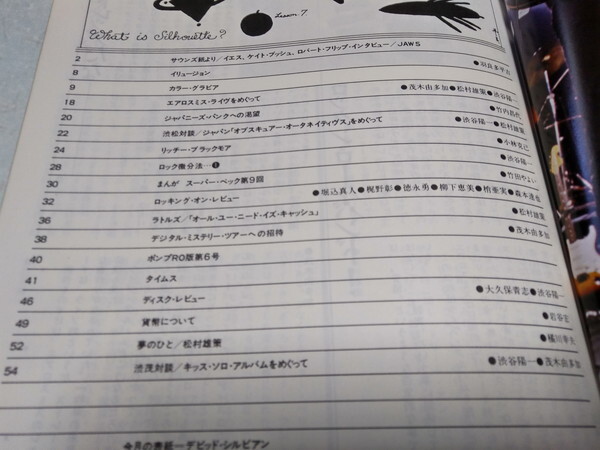 Lesson 7.
What is Silhouette?
2 サウンズ紙より/イエス、ケイト・ブッシュ、ロバート・フリップ・インタビュー/JAWS
8 イリュージョン ●羽良多平吉
9 カラー・グラビア
18 エアロスミス・ライヴをめぐって ●茂木由多加●松村雄策●渋谷陽一
20 ジャパニーズ・パンクへの渇望 ●竹内昌代
22 渋松対談/ジャパン「オブスキュアー・オータネイティヴス」をめぐって ●渋谷陽一●松村雄策
24 リッチー・ブラックモア ●小林克己
28 ロック微分法…❶ ●渋谷陽一
30 まんが スーパー・ベック第9回 ●竹田やよい
32 ロッキング・オン・レビュー ●堀込真人●梶野彰●徳永勇●柳下恵美●梢亜実●森本達也
36 ラトルズ/「オール・ユー・ニード・イズ・キャッシュ」 ●松村雄策
38 デジタル・ミステリー・ツアーへの招待 ●茂木由多加
40 ポンプRO版第6号
41 タイムス
46 ディスク・レビュー ●大久保青志●渋谷陽一
49 貨幣について ●岩谷宏
52 夢のひと/松村雄策 ●橘川幸夫
54 渋茂対談/キッス・ソロ・アルバムをめぐって ●渋谷陽一●茂木由多加
今月の表紙―デビッド・シルビアン